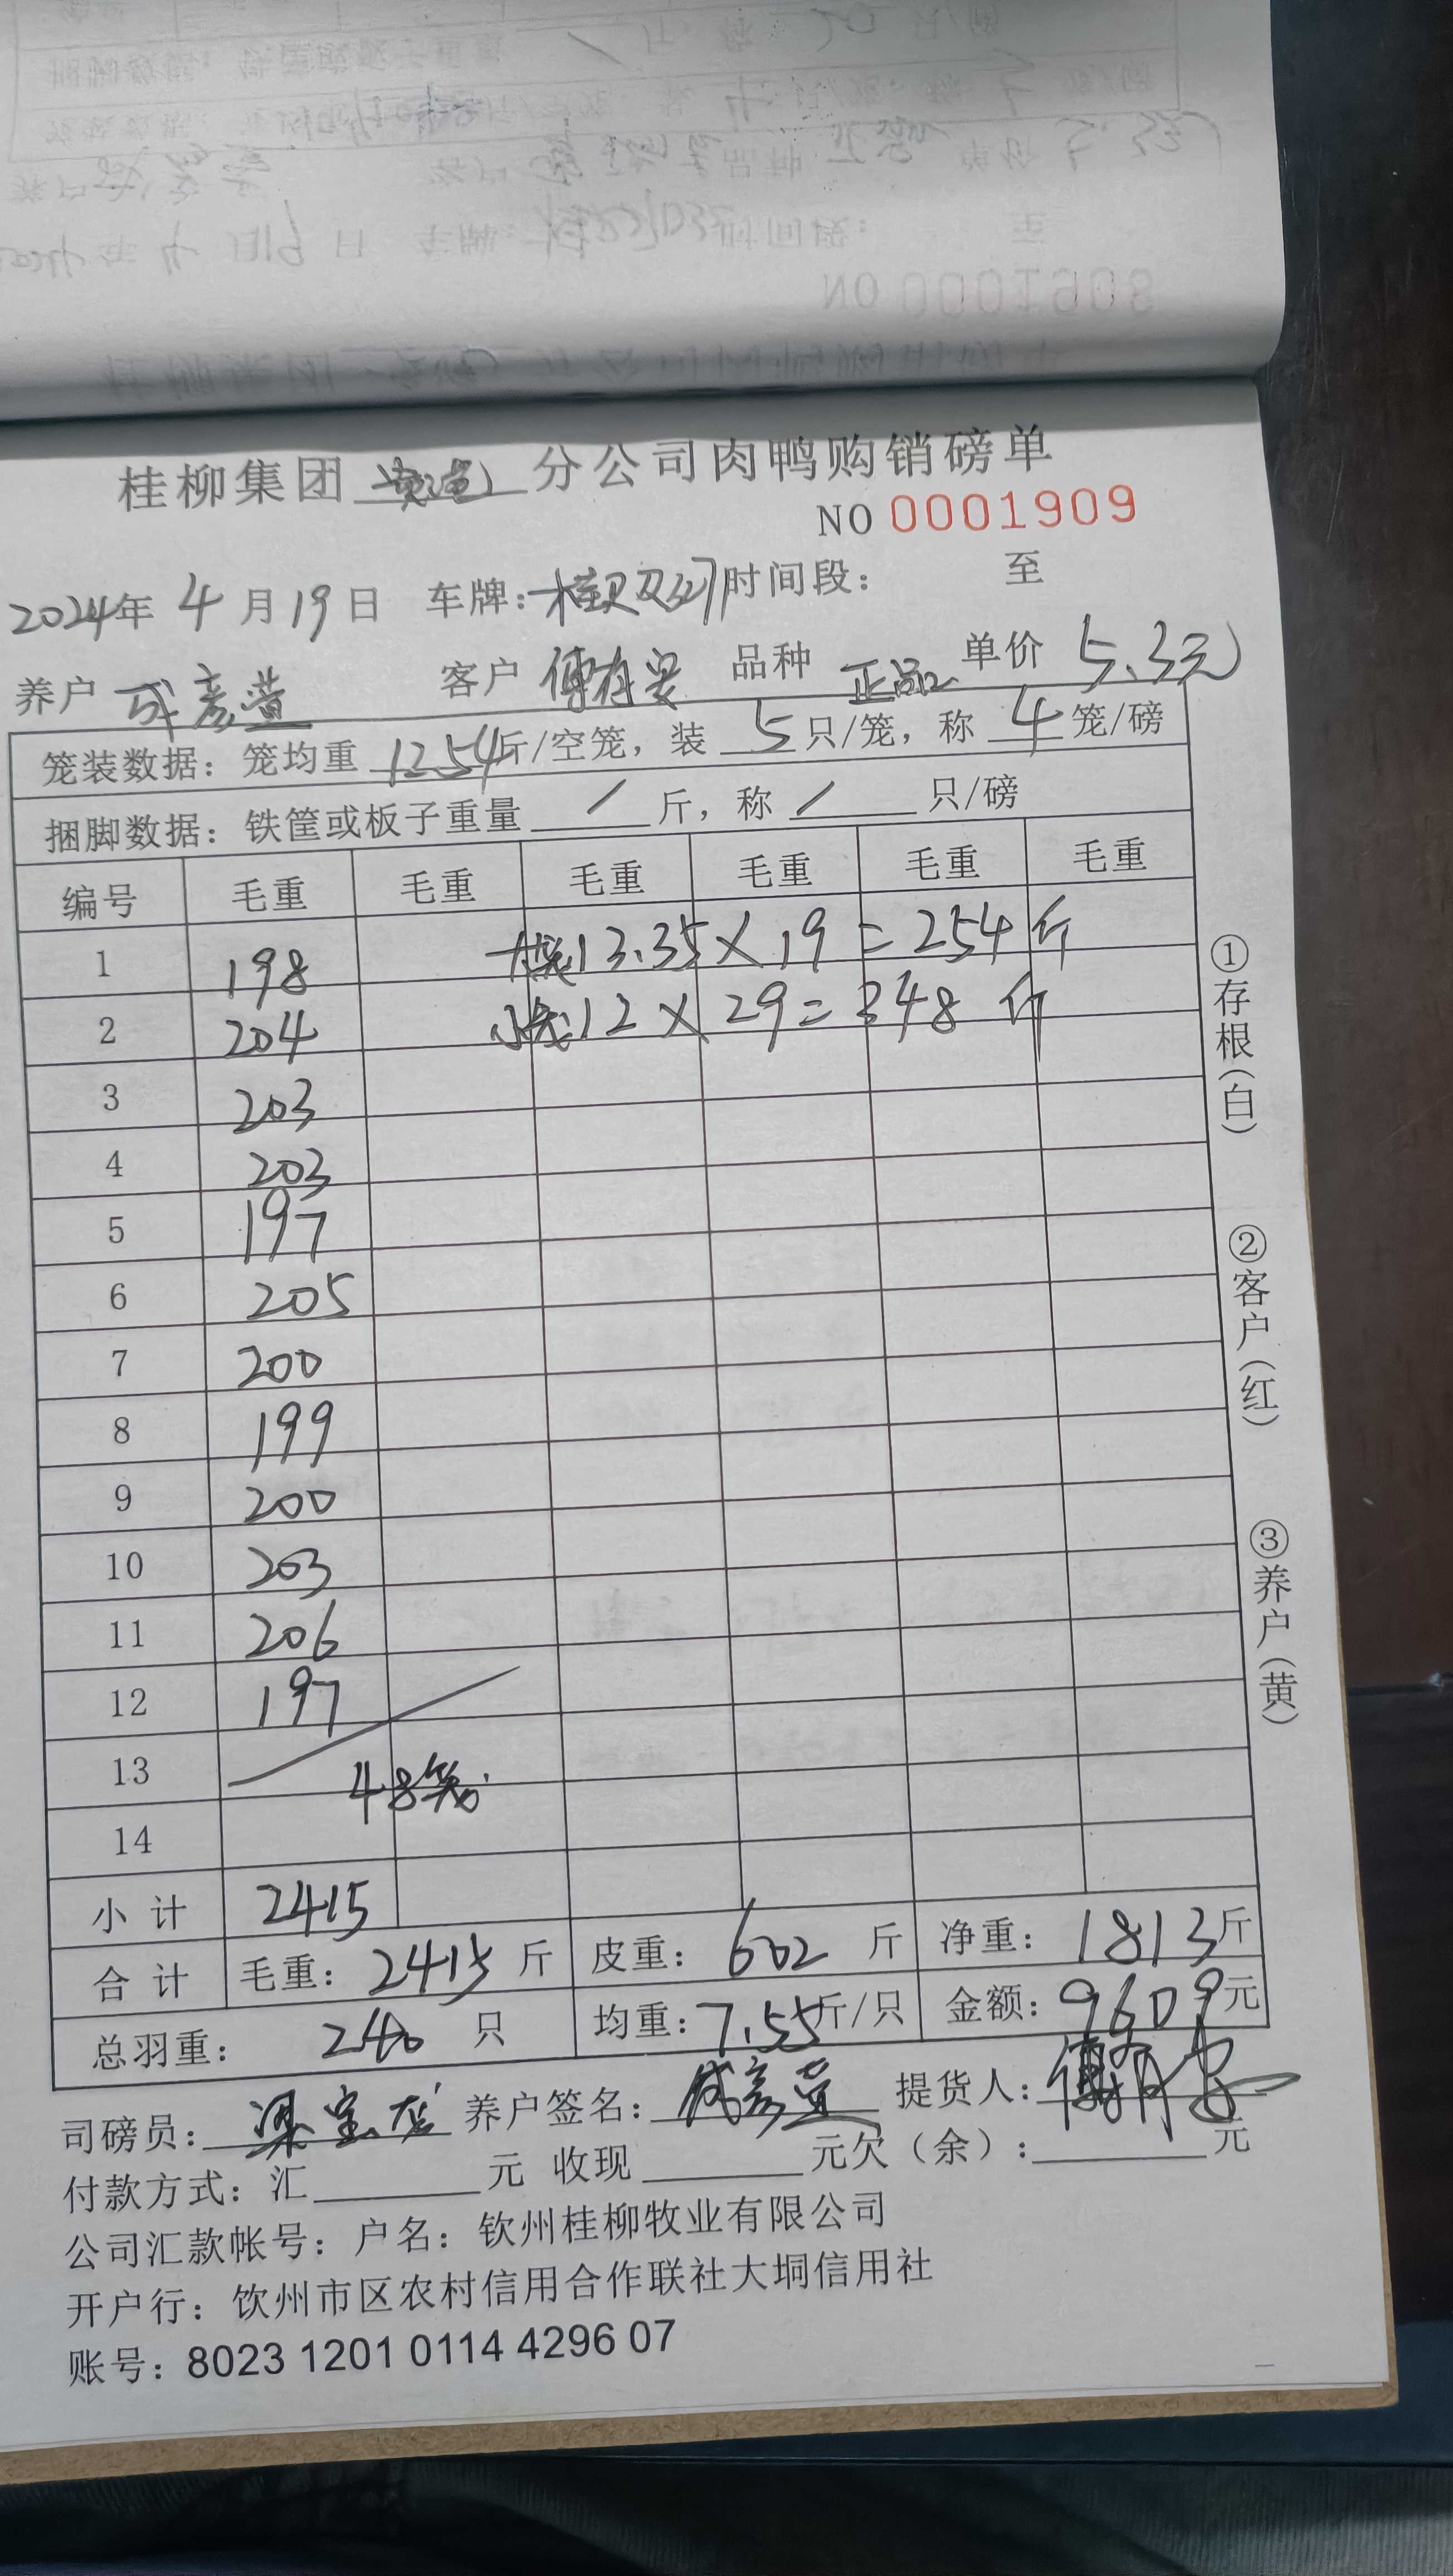 桂柳集团 分公司肉鸭购销磅单
NO 0001909
2024年 4月19日 车牌: 时间段: 至
养户 成彦萱 客户 傅有安 品种 正品 单价 5.3元
笼装数据: 笼均重 12.54斤/空笼, 装 5 只/笼, 称 4 笼/磅
捆脚数据: 铁筐或板子重量 / 斤, 称 / 只/磅
编号 毛重 毛重 毛重 毛重 毛重 毛重
1 198 大笼13.35×19=254斤
2 204 小笼12×29=348斤
3 203
4 203
5 197
6 205
7 200
8 199
9 200
10 203
11 206
12 197
13 48笼
14
小计 2415
合计 毛重: 2415 斤 皮重: 602 斤 净重: 1813斤
总羽重: 240 只 均重: 7.55斤/只 金额: 9609元
司磅员: 养户签名: 成彦萱 提货人: 傅有安
付款方式: 汇 元 收现 元欠(余): 元
公司汇款帐号: 户名: 钦州桂柳牧业有限公司
开户行: 饮州市区农村信用合作联社大垌信用社
账号: 8023 1201 0114 4296 07
①存根(白)
②客户(红)
③养户(黄)